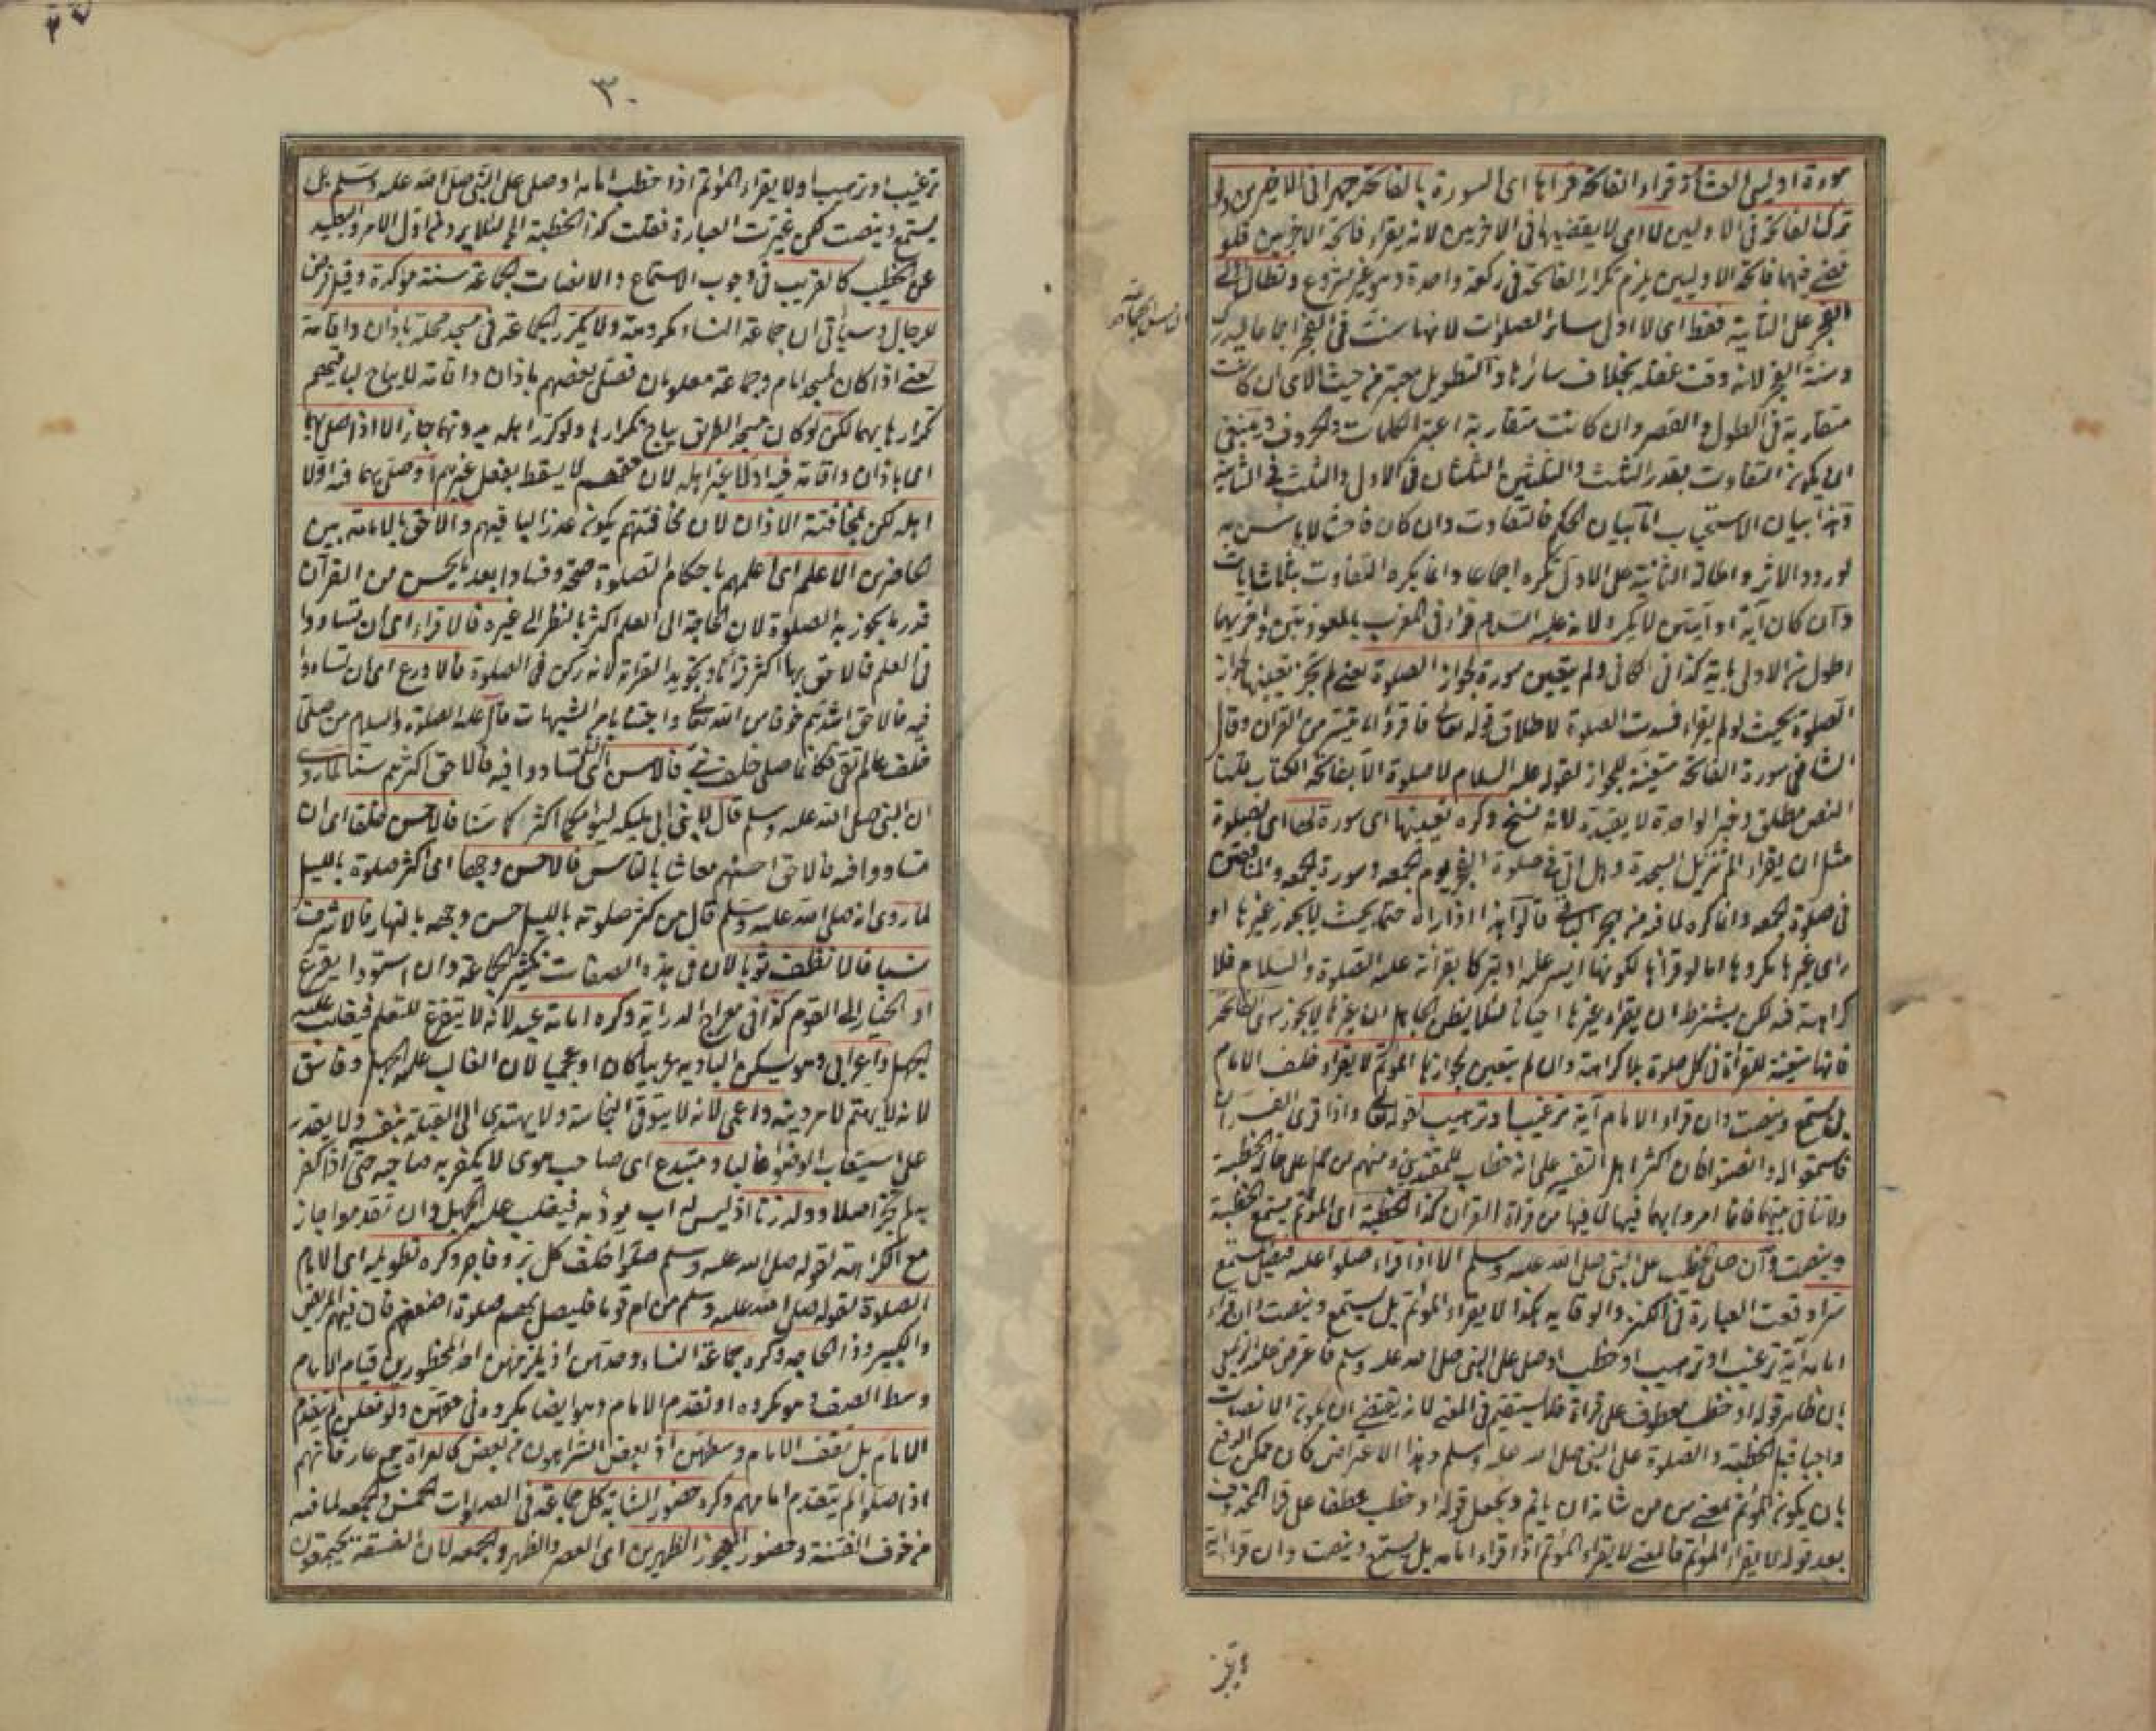 سورة اوليي العشاء وقراء الفاتحة قراها اى السورة بالفاتحة جهرا فى الاخريين ولو
ترك الفاتحة فى الاوليين لا اى لا يقضيها فى الاخريين لانه يقراء فاتحة الاخريين فلو
قضى فيهما فاتحة الاوليين يلزم تكرار الفاتحة فى ركعة واحدة وهو غير مشروع وتطال اولى
الفجر على الثانية فقط اى لا اولى سائر الصلوات لانها سنت فى الفجر
وسنة الفجر لانه وقت غفلة بخلاف سائرها والتطويل معتبر من حيث الاى ان كانت
متقاربة فى الطول والقصر وان كانت متقاربة اعتبر الكلمات والحروف وينبغى
ان يكون التفاوت بقدر الثلث والثلثين الثلثان فى الاولى والثلث فى الثانية
وهذا بيان الاستحباب اما بيان الحكم فالتفاوت وان كان فاحشا لا باس به
لورود الاثر واطالة الثانية على الاولى تكره اجماعا وانما يكره التفاوت بثلاث ايات
وان كان آية او آيتين لا يكره لانه عليه السلام قراء فى المغرب بالمعوذتين واخريهما
اطول من الاولى باية كذا فى الكافى ولم يتعين سورة لجواز الصلوة يعنى لم يجز تعيينها لجواز
الصلوة بحيث لو لم يقراء فسدت الصلوة لاطلاق قوله تعالى فاقرؤا ما تيسر من القران وقال
الشافعى سورة الفاتحة متعينة للجواز لقوله عليه السلام لا صلوة الا بفاتحة الكتاب قلنا
النص مطلق وخبر الواحد لا يقيده لانه نسخ وكره تعيينها اى سورة لها اى لصلوة
مثل ان يقراء الم تنزيل السجدة وهل اتى فى صلوة الفجر يوم الجمعه وسورة الجمعه والمنافقين
فى صلوة الجمعه وانما كره لما فيه من هجر الباقى قالوا هذا اذا راه حتما بحيث لا يجوز غيرها او
راى غيرها مكروها اما لو قراها لكونها ايسر عليه او تبركا بقرأته عليه الصلوة والسلام فلا
كراهة فيه لكن يشترط ان يقراء غيرها احيانا لئلا يظن الجاهل ان غيرها لا يجوز سوى الفاتحة
فانها متعينة للقرأة فى كل صلوة بلا كراهة وان لم يتعين لجوازها المؤتم لا يقراء خلف الامام
بل يستمع وينصت وان قراء الامام آية ترغيب او ترهيب لقوله تعالى واذا قرئ القران
فاستمعوا له وانصتوا فان اكثر اهل التفسير على انه خطاب للمقتدين ومنهم من حمل على حالة الخطبة
ولا تنافى بينهما فانما امروا بهما فيها لما فيها من قراة القران كذا الخطبة اى المؤتم يستمع الخطبة
وينصت وان صلى الخطيب على النبى صلى الله عليه وسلم الا اذا قراء صلوا عليه فيصلى المستمع
سرا وقعت العبارة فى الكنز والوقايه هكذا لا يقراء المؤتم بل يستمع وينصت وان قراء
امامه آية ترغيب او ترهيب او خطب او صلى على النبى صلى الله عليه وسلم فاعترض عليه الزيلعى
بان ظاهر قوله او خطب معطوف على قراة فلا يستقيم فى المعنى لانه يقتضى ان يكون الانصات
واجبا قبل الخطبة والصلوة على النبى صلى الله عليه وسلم وهذا الاعتراض كان ممكن الدفع
بان يكون المؤتم بمعنى من من شانه ان ياتم ويجعل قوله او خطب عطفا على قراء المحذوف
بعد قوله لا يقراء المؤتم فالمعنى لا يقراء المؤتم اذا قراء امامه بل يستمع وينصت وان قراء اية
٣٠
ترغيب او ترهيب او لا يقراء المؤتم اذا خطب امامه او صلى على النبى صلى الله عليه وسلم بل
يستمع وينصت لكن غيرت العبارة فقلت كذا الخطبة الخ لئلا يرد على اول الامر والبعيد
عن الخطيب كالقريب فى وجوب الاستماع والانصات الجماعة سنة مؤكدة وقيل فرض
للرجال وسياتى ان جماعة النساء مكروهة ولا يكرر الجماعة فى مسجد محلة باذان واقامة
يعنى اذا كان لمسجد امام وجماعة معلومان فصلى بعضهم باذان واقامة لا يباح لباقيهم
تكرارها بهما لكن لو كان مسجد الطريق يباح تكرارها ولو كرر اهله بدونهما جاز الا اذا صلى بهما
اى باذان واقامة فيه اولا غير اهله لان حقهم لا يسقط بفعل غيرهم او صلى بهما فيه اولا
اهله لكن لمخافتة الاذان لان مخافتتهم يكون عذرا لباقيهم والاحق بالامامة بين
الحاضرين الاعلم اى اعلمهم باحكام الصلوة صحة وفسادا بعد ما يحسن من القرآن
قدر ما يجوز به الصلوة لان الحاجة الى العلم اكثر بالنظر الى غيره فالاقراء اى ان تساووا
فى العلم فالاحق بها اكثر قرآنا وتجويدا القراءة لانه ركن فى الصلوة فالاورع اى ان تساووا
فيه فالاحق اشدهم خوفا من الله تعالى واجتنابا من الشبهات قال عليه الصلوة والسلام من صلى
خلف عالم تقى فكانما صلى خلف نبى فالاسن اى ان تساووا فيه فالاحق اكثرهم سنا لما روى
ان النبى صلى الله عليه وسلم قال لابنى ابى مليكه ليؤمكما اكثركما سنا فالاحسن خلقا اى ان
تساووا فيه فالاحق احسنهم معاشا بالناس فالاحسن وجها اى اكثر صلوة بالليل
لما روى انه صلى الله عليه وسلم قال من كثر صلوته بالليل حسن وجهه بالنهار فالاشرف
نسبا فالانظف ثوبا لان فى هذه الصفات تكثير الجماعة وان استووا يقرع
او الخيار الى القوم كذا فى معراج الدراية وكره امامة عبد لانه لا يتفرغ للتعلم فيغلب عليه
الجهل واعرابى وهو يسكن البادية عربيا كان او عجميا لان الغالب عليه الجهل وفاسق
لانه لا يهتم لامر دينه واعمى لانه لا يتوقى النجاسة ولا يهتدى الى القبلة بنفسه ولا يقدر
على استيعاب الوضوء غالبا ومبتدع اى صاحب هوى لا يكفر به صاحبه حتى اذا كفر
به لم يجز اصلا وولد زنا اذ ليس له اب يؤدبه فيغلب عليه الجهل وان تقدموا جاز
مع الكراهة لقوله صلى الله عليه وسلم صلوا خلف كل بر وفاجر وكره تطويله اى الامام
الصلوة لقوله صلى الله عليه وسلم من ام قوما فليصل بهم صلوة اضعفهم فان فيهم المريض
والكبير وذا الحاجه وكره جماعة النساء وحدهن اذ يلزمهن احد المحظورين قيام الامام
وسط الصف وهو مكروه او تقدم الامام وهو ايضا مكروه فى حقهن ولو فعلن لم يتقدم
الامام بل تقف الامام وسطهن
اذا صلوا لم يتقدم امامهم وكره حضور الشابة كل جماعة فى الصلوات الخمس والجمعه لما فيه
من خوف الفتنة وحضور العجوز الظهرين اى العصر والظهر والجمعه لان الفسقة يجتمعون